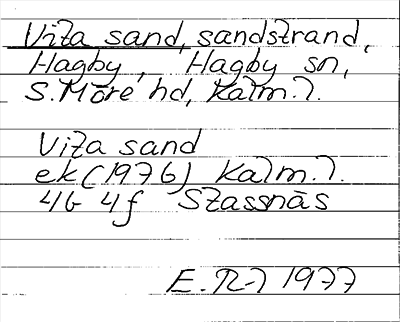 Vita sand, sandstrand,
Hagby, Hagby sn,
S. Möre hd, Kalm. l.
Vita sand
ek (1976) Kalm. l.
4G 4f Stassnäs
E. R-l 1977